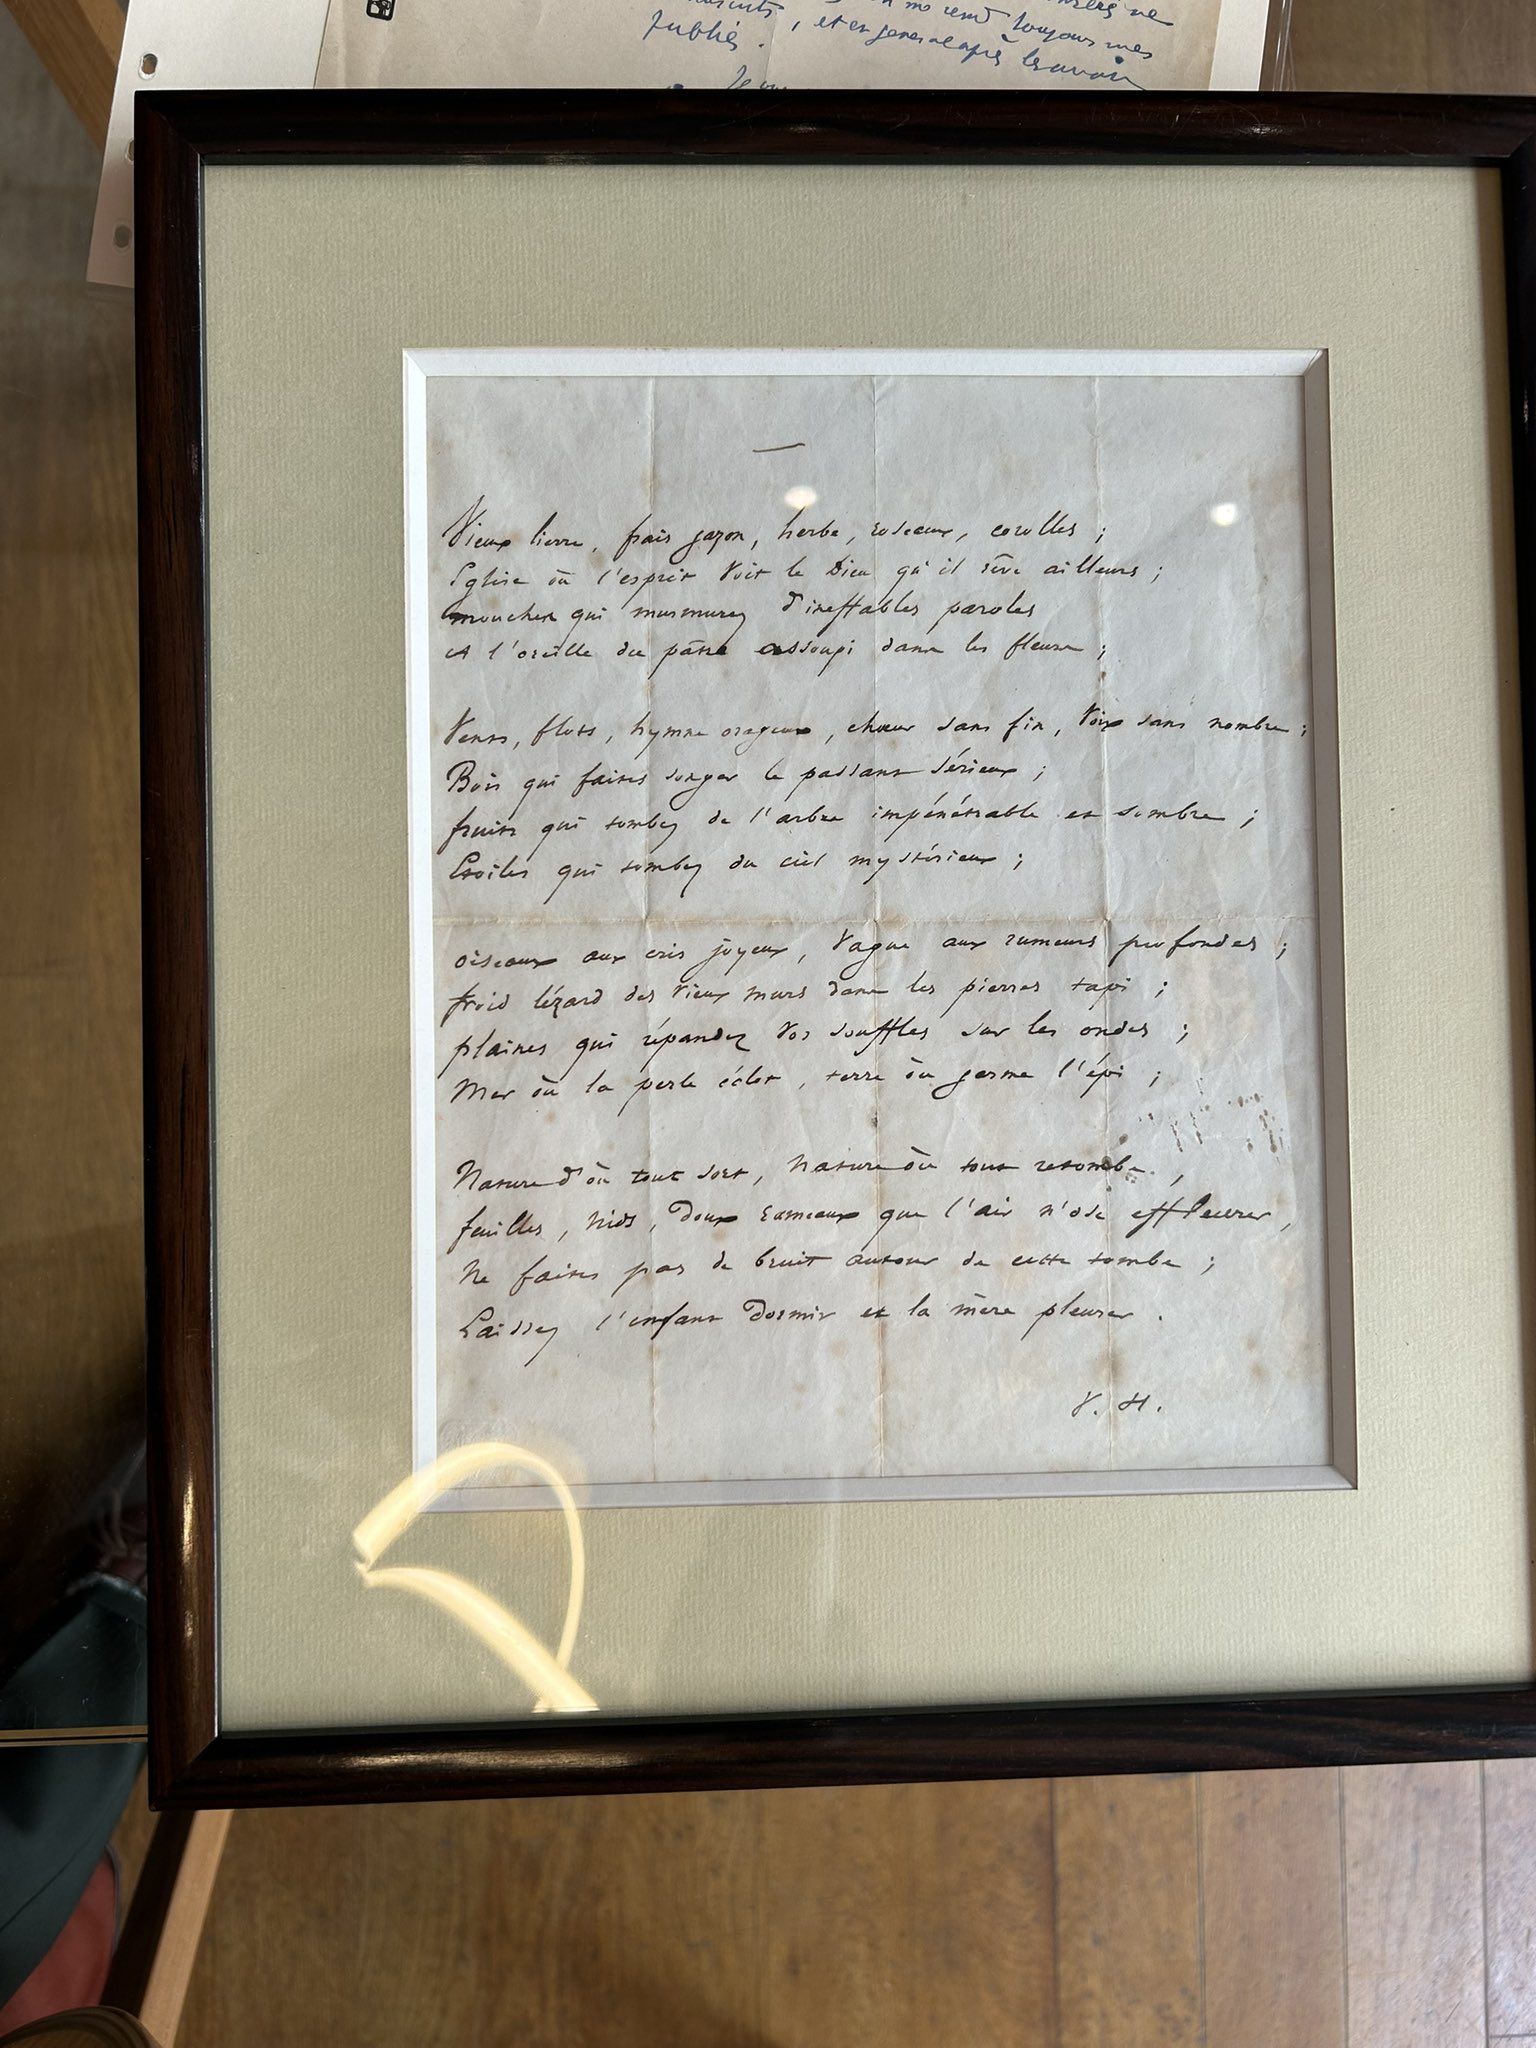 me rend toujours mes
publiés. , et en general après les avoir
Je
Vieux lierre, frais gazon, herbe, roseaux, corolles ;
Eglise où l'esprit voit le Dieu qu'il rêve ailleurs ;
mouches qui murmurez d'ineffables paroles
A l'oreille du pâtre assoupi dans les fleurs ;
Vents, flots, hymne orageux, chœur sans fin, voix sans nombre ;
Bois qui faites songer le passant sérieux ;
fruits qui tombez de l'arbre impénétrable et sombre ;
Etoiles qui tombez du ciel mystérieux ;
oiseaux aux cris joyeux, vague aux rumeurs profondes ;
froid lézard des vieux murs dans les pierres tapi ;
plaines qui répandez vos souffles sur les ondes ;
Mer où la perle éclot, terre où germe l'épi ;
Nature d'où tout sort, Nature où tout retombe,
feuilles, nids, doux rameaux que l'air n'ose effleurer,
Ne faites pas de bruit autour de cette tombe ;
Laissez l'enfant dormir et la mère pleurer.
V. H.